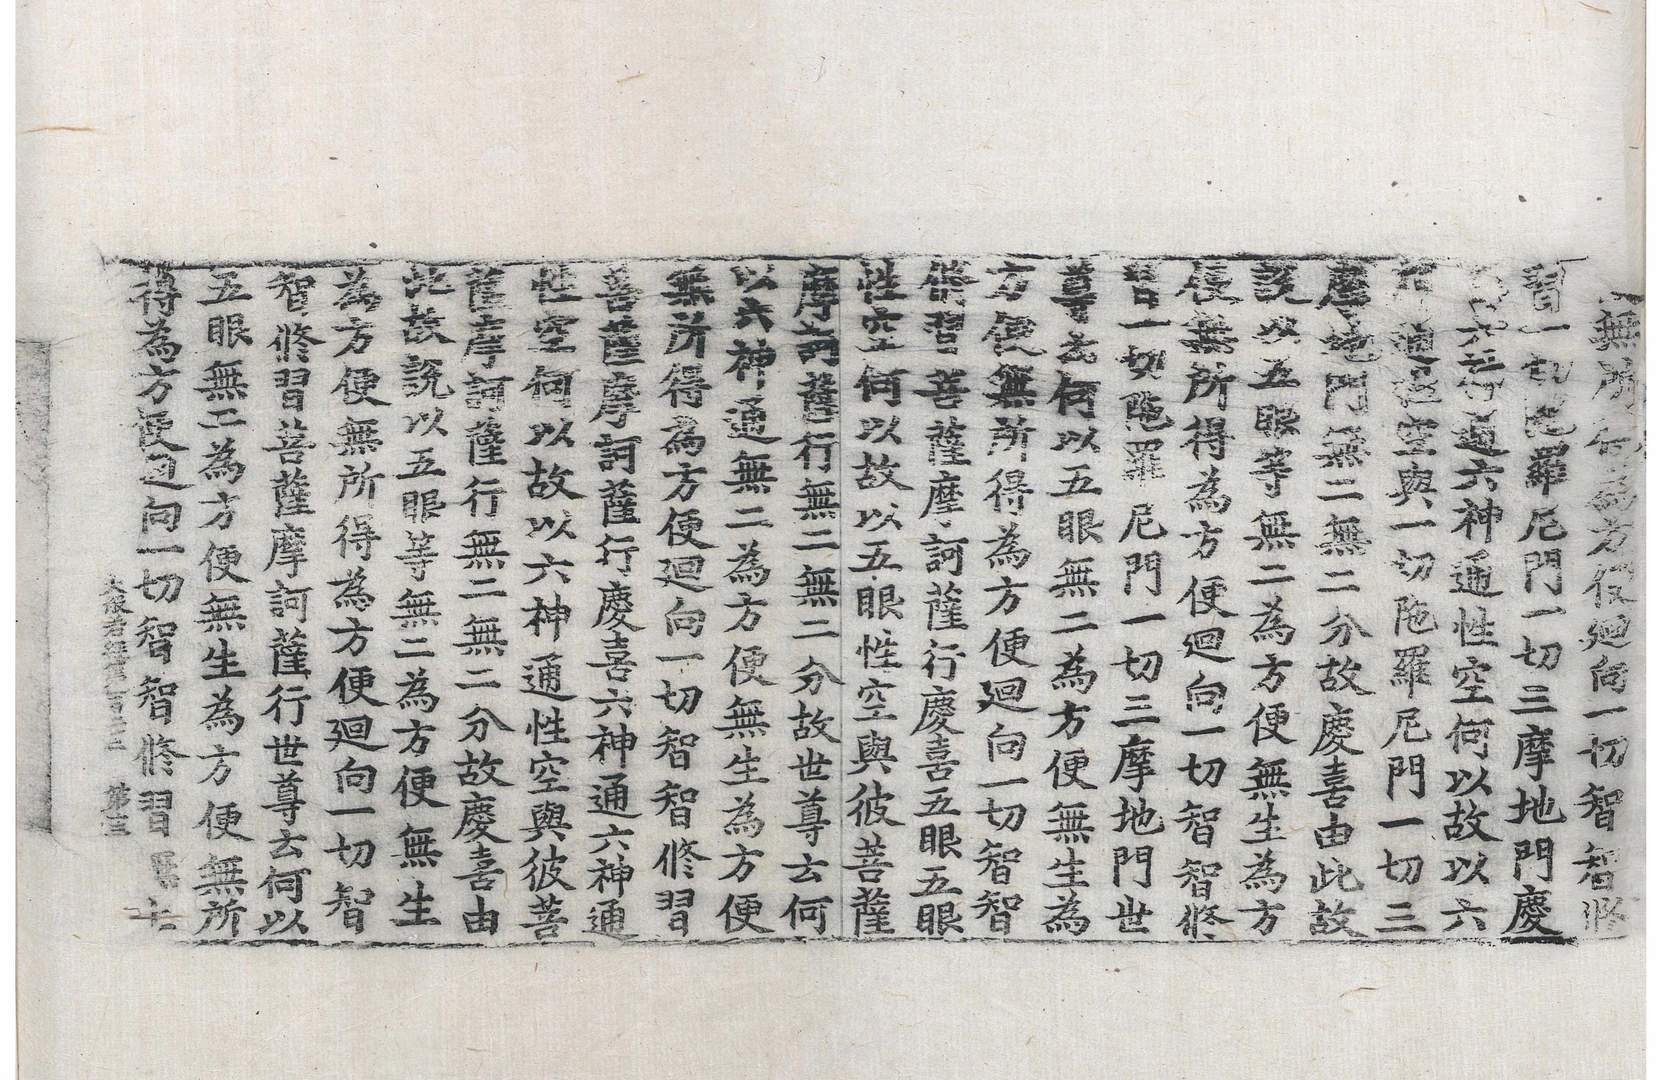 無所得為方便迴向一切智智修
習一切陁羅尼門一切三摩地門慶
喜六神通六神通性空何以故以六
神通性空與一切陁羅尼門一切三
摩地門無二無二分故慶喜由此故
說以五眼等無二為方便無生為方
便無所得為方便迴向一切智智修
習一切陁羅尼門一切三摩地門世
尊云何以五眼無二為方便無生為
方便無所得為方便迴向一切智智
修習菩薩摩訶薩行慶喜五眼五眼
性空何以故以五眼性空與彼菩薩
摩訶薩行無二無二分故世尊云何
以六神通無二為方便無生為方便
無所得為方便迴向一切智智修習
菩薩摩訶薩行慶喜六神通六神通
性空何以故以六神通性空與彼菩
薩摩訶薩行無二無二分故慶喜由
此故說以五眼等無二為方便無生
為方便無所得為方便迴向一切智
智修習菩薩摩訶薩行世尊云何以
五眼無二為方便無生為方便無所
得為方便迴向一切智智修習無上
大般若經第百 第